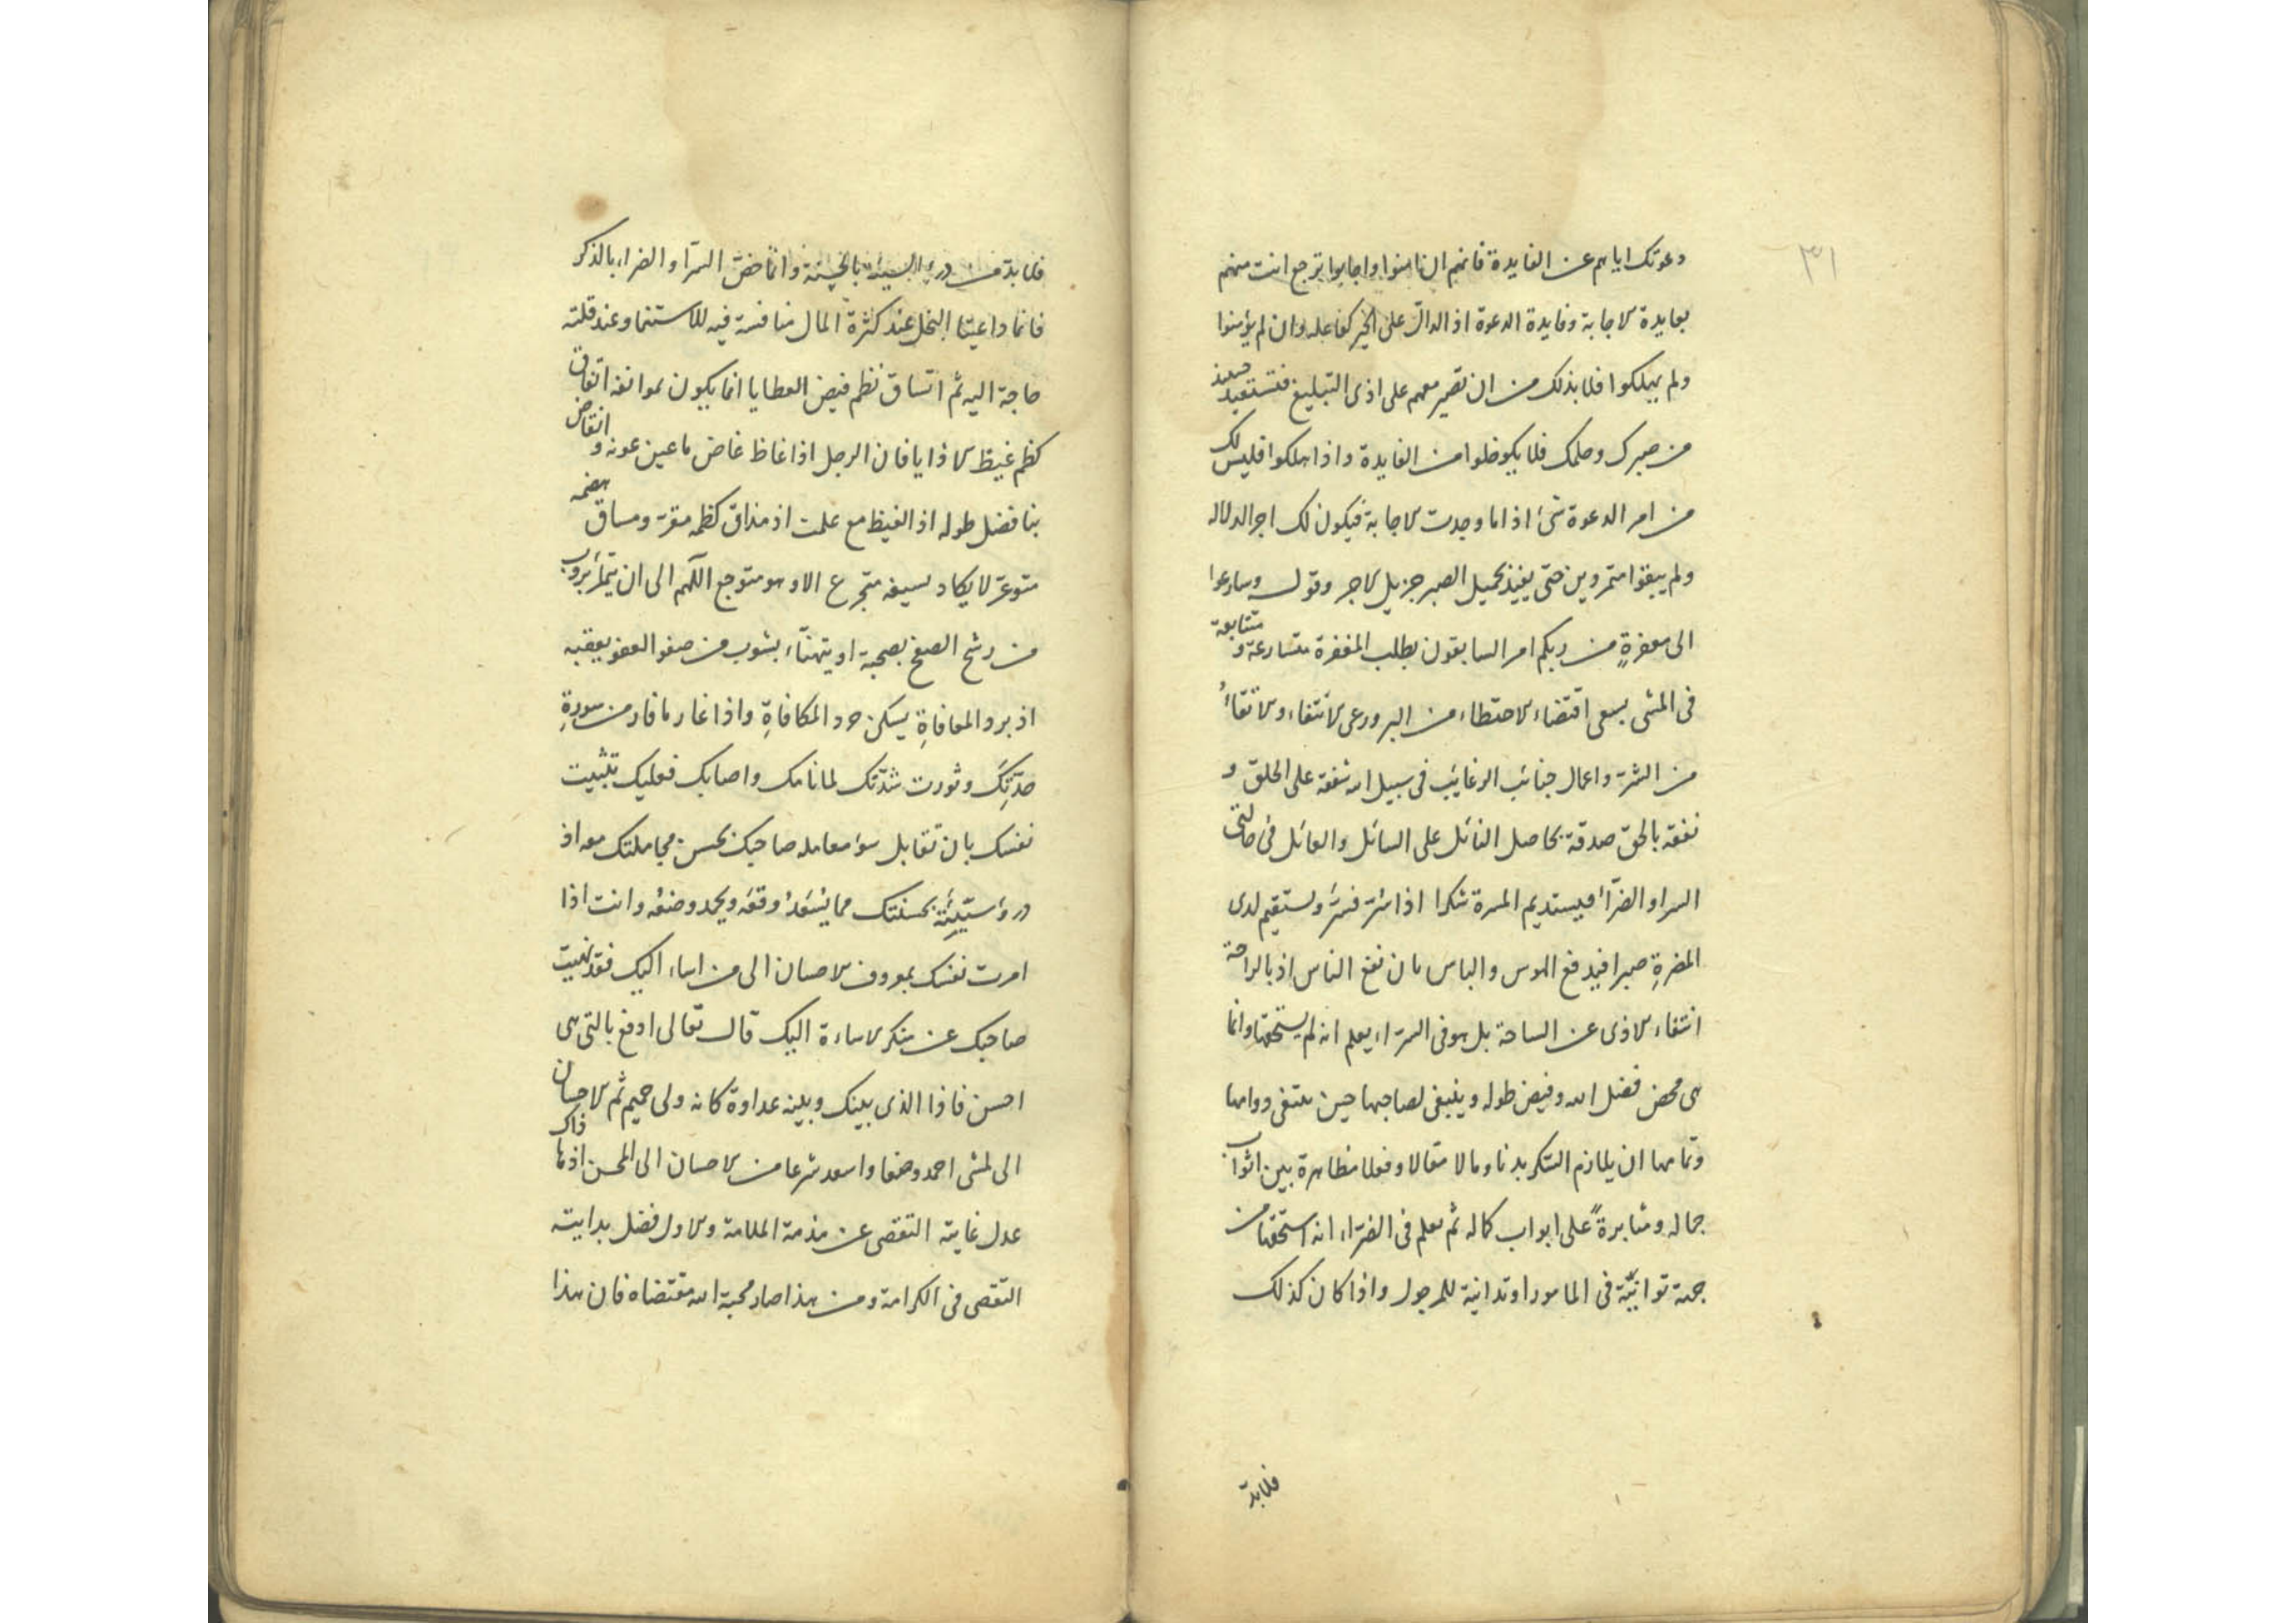 ٣١
دعوتك اياهم عن الفايدة فانهم ان امنوا واجابوا ترجع انت منهم
بعايدة الاجابة وفايدة الدعوة اذ الدال على الخير كفاعله وان لم يؤمنوا
ولم يهلكوا فلا بذلك من ان تصير معهم على اذى التبليغ فتستفيد حينئذ
من صبرك وحلمك فلا يكو خلوا من الفايدة واذا هلكوا فليس لك
من امر الدعوة شئ اذ اما وجدت الاجابة فيكون لك اجر الدلاله
ولم يبقوا متمردين حتى يفيد بجميل الصبر جزيل الاجر وقوله وسارعوا
الى مغفرةٍ من ربكم امر السابقون بطلب المغفرة متسارعة و متتابعة
فى المشى بسعى اقتضاء الاحتطاء من البر ورعى الانتفاء والاتقاءُ
من الشرّ واعمال جنائب الرغايب فى سبيل الله شفقة على الخلق و
نفقة بالحق صدقة بحاصل النائل على السائل والعائل فى حالتى
السرا والضرّاء فيستديم المسرة شكرا اذا سُرّ فسرّ وستقيم لدى
المضرةِ صبرا فيدفع البوس والباس بان نفع الناس اذ بالراحة
انتفاء الاذى عن الساحة بل هو فى السرّاء يعلم انه لم يستحقها وانما
هى محض فضل الله وفيض طوله وينبغى لصاحبها حين يبتغى دوامها
وتمامها ان يلازم الشكر بدنا ومالا مقالا وفعلا مظاهرة بين اثواب
جماله ومثابرةً على ابواب كماله ثم يعلم فى الضرّاء انه استحقها من
جهة توانيّه فى المامور او تدانيه للمرجول واذا كان كذلك
فلابدّ
فلابدّ من درء السيئة بالحسنة وانما خصّ السرّآ والضراء بالذكر
فانما داعيتا البخل عند كثرة المال منافسة فيه للاستنما وعند قلته
حاجة اليه ثم اتساق نظم فيض العطايا انما يكون بموانفه اتفاق
كظم غيظ الاذايا فان الرجل اذا غاظ غاض ماعين عونه و انقاض
بنا فضل طوله اذ الغيظ مع علمت اذ مذاق كظمه مقرّ ومساق هضمه
متوعّر لا يكاد يسيغه متجرع الا وهو متوجع اللهم الى ان يتمرّا بروب
من رشح الصفح بصحبة او يتهنّاء بشوب من صفو العفو يعقبه
اذ برد المعافاةِ يسكن حرد المكافاةِ واذا غار ما فار من سورةِ
حدّتِكَ وثورت شدّتك لما نابك واصابك فعليك بتثبيت
نفسك بان تقابل سؤ معامله صاحبك بحسن مجاملتك معه اذ
درءُ سيّئِته بحسنتك مما يُسْعَدُ وقعَه ويحمد وضعُه وانت اذا
امرت نفسك بمعروف الاحسان الى من اساء اليك فقد نهيت
صاحبك عن منكر الاساءة اليك قال تعالى ادفع بالتى هى
احسن فاذا الذى بينك وبينه عداوة كانه ولى حميم ثم الاحسان
الى المسئ احمد وضعا واسعد شرعا من الاحسان الى المحسن اذ ما ذاك
عدل غايته التقصى عن مذمة الملامة والاول فضل بدايته
التقصى فى الكرامة ومن هذا صار محبة الله مقتضاه فان هذا